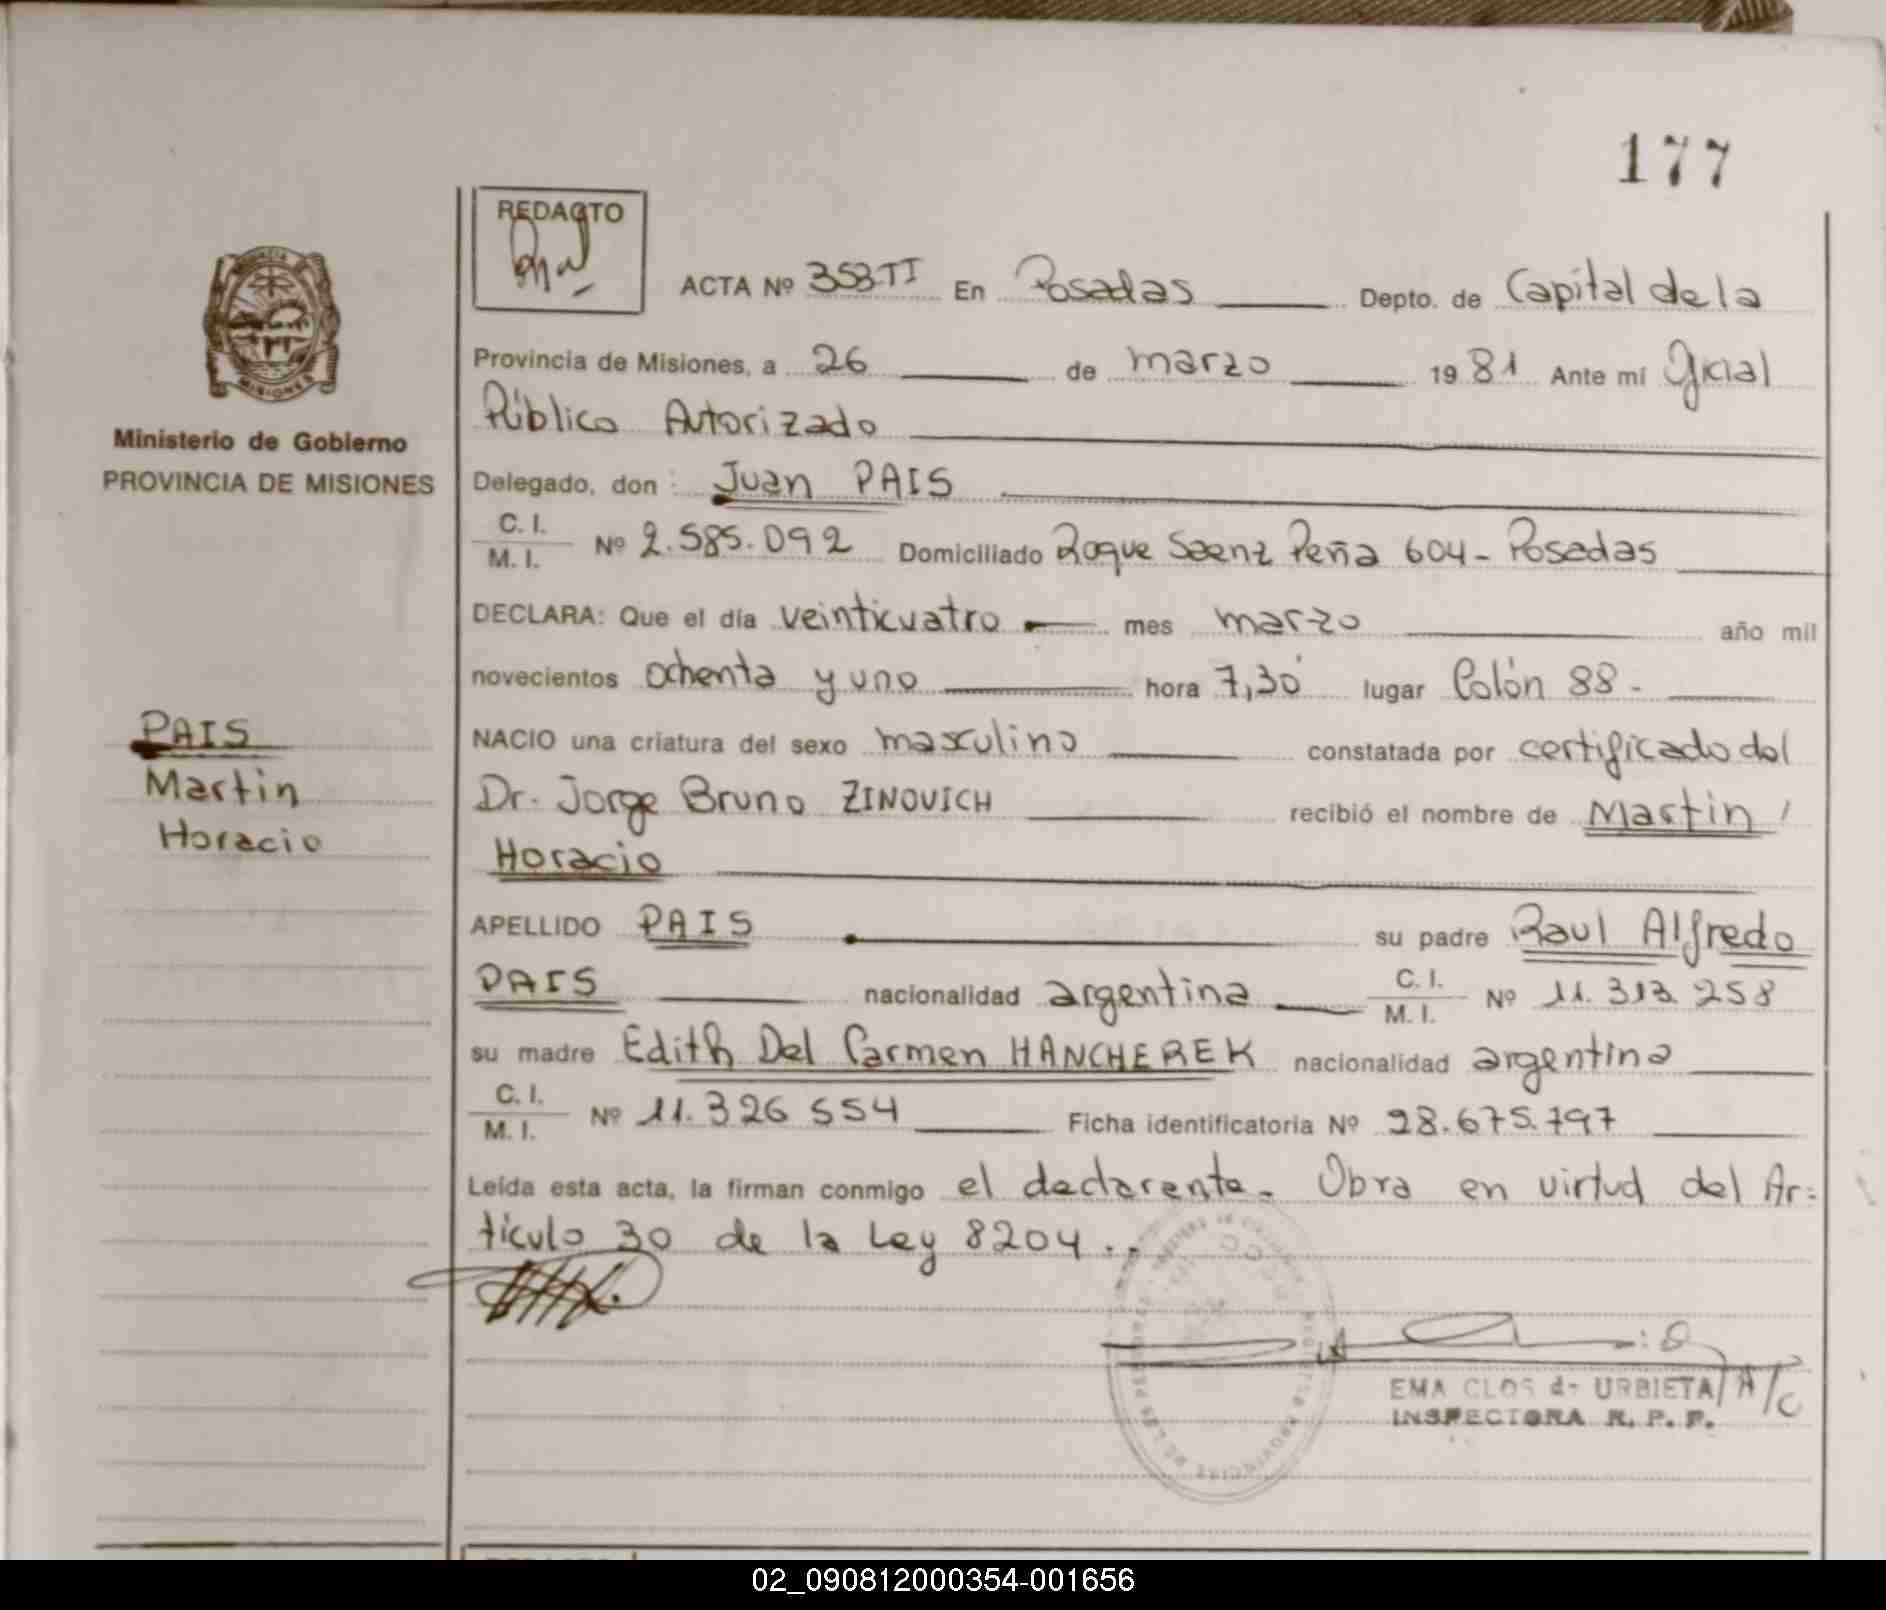 177
REDACTO
ACTA Nº 353 TI En Posadas Depto. de Capital de la
Provincia de Misiones, a 26 de marzo 1981 Ante mí Oficial
Público Autorizado
Ministerio de Gobierno
PROVINCIA DE MISIONES
Delegado, don: Juan PAIS
C. I.
M. I. Nº 2.585.092 Domiciliado Roque Saenz Peña 604 - Posadas
DECLARA: Que el día veinticuatro mes marzo año mil
novecientos ochenta y uno hora 7,30 lugar Colón 88 -
PAIS
Martin
Horacio
NACIO una criatura del sexo masculino constatada por certificado del
Dr. Jorge Bruno ZINOVICH recibió el nombre de Martin
Horacio
APELLIDO PAIS su padre Raul Alfredo
PAIS nacionalidad argentina C. I.
M. I. Nº 11.313.258
su madre Edith Del Carmen HANCHEREK nacionalidad argentina
C. I.
M. I. Nº 11.326.554 Ficha identificatoria Nº 28.675.797
Leída esta acta, la firman conmigo el declarante. Obra en virtud del Ar=
tículo 30 de la Ley 8204..
EMA CLOS de URBIETA A/C
INSPECTORA R. P. P.
MISIONES
02_090812000354-001656